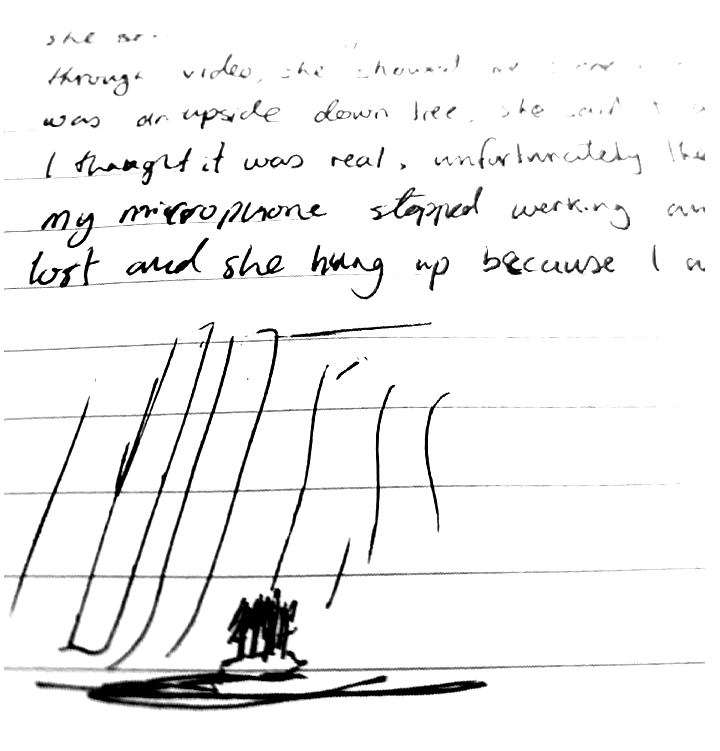 she
through video, she showed me
was an upside down tree, she said I
I thought it was real, unfortunately the
my microphone stopped working
lost and she hung up because I